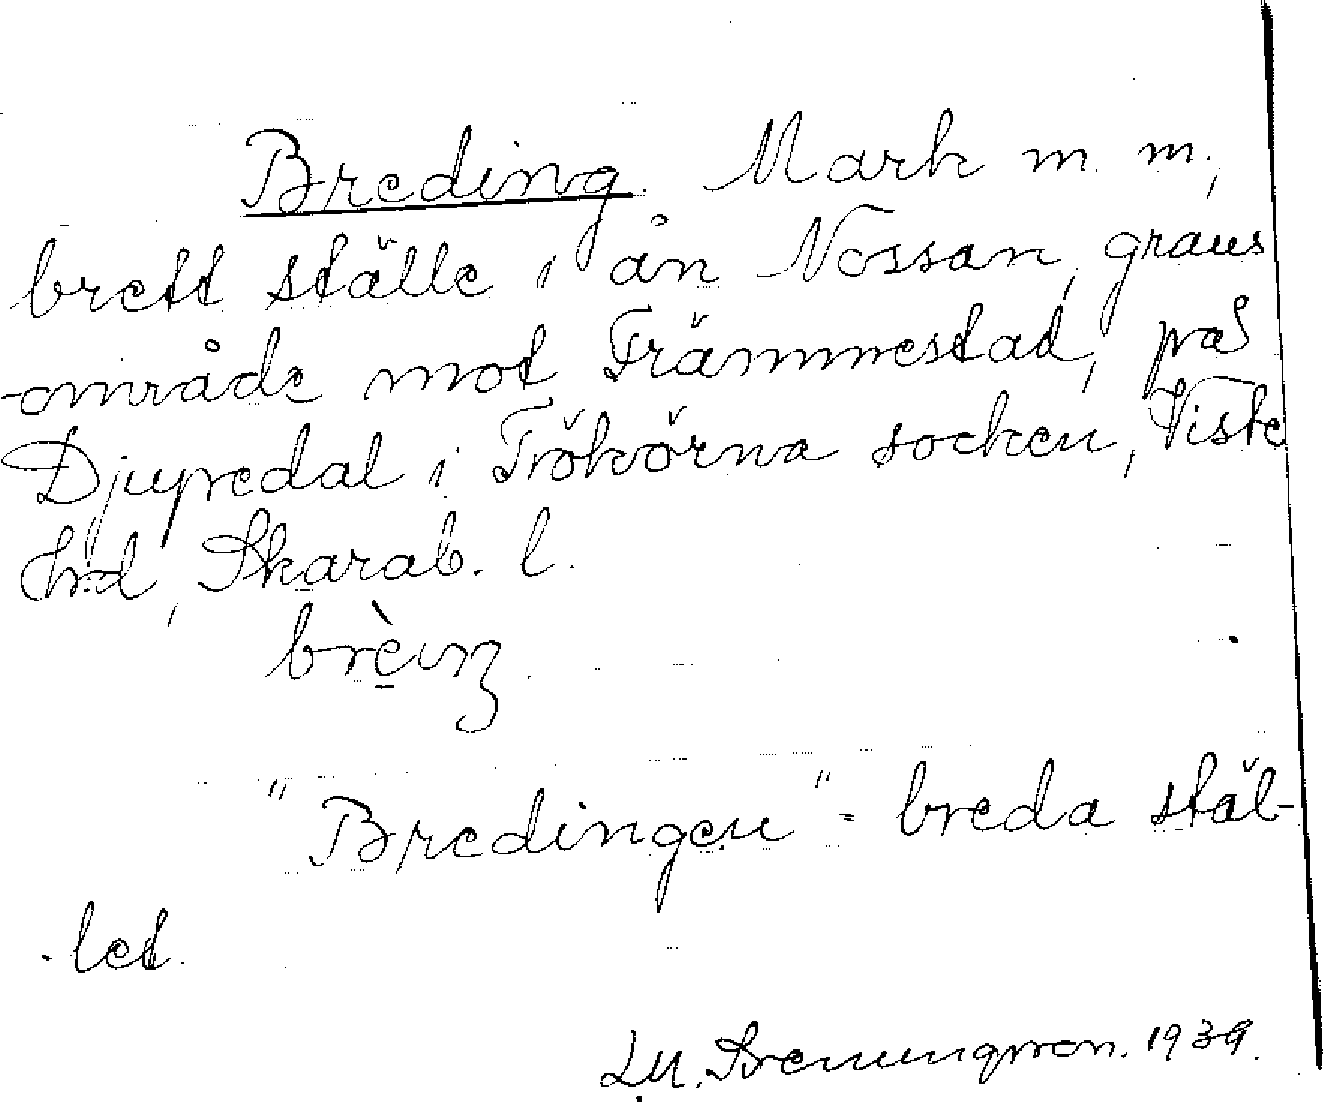 Breding. Mark m. m.,
brett ställe i ån Nossan, gräns
-område mot Främmestad, på
Djupedal i Fröhörna socken, Viste
hrd, Skarab. l.
brèıŋ.
"Bredingen" = breda stäl-
let.
1939.